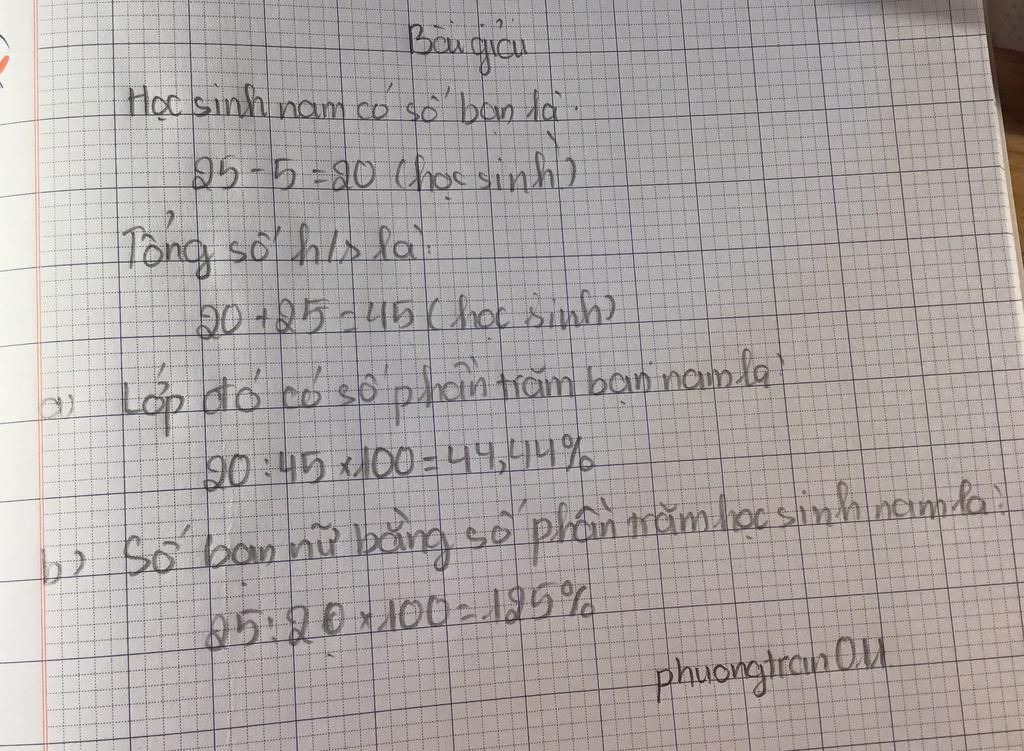 Bài giải
Học sinh nam có số bạn là:
25 - 5 = 20 (học sinh)
Tổng số h/s là:
20 + 25 = 45 (học sinh)
a) Lớp đó có số phần trăm bạn nam là:
20 : 45 x 100 = 44,44%
b) Số bạn nữ bằng số phần trăm học sinh nam là:
25 : 20 x 100 = 125%
phuongtran